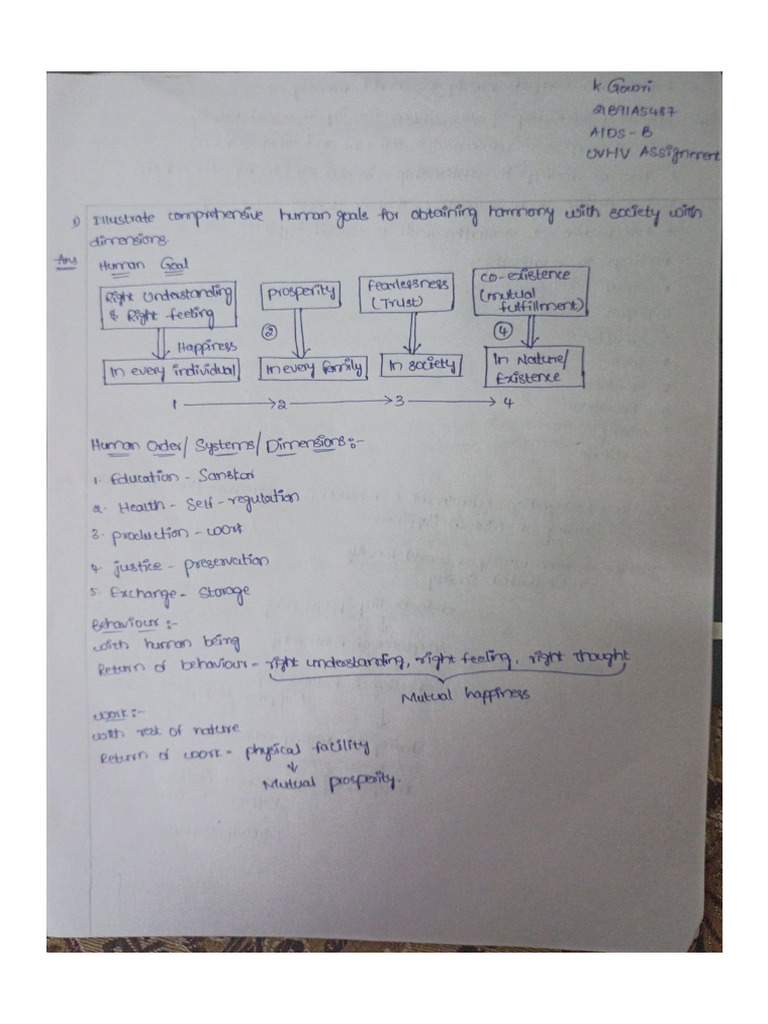 K. Gowri
21B91A5487
AIDS - B
UVHV Assignment
1) Illustrate comprehensive human goals for obtaining harmony with society with
dimensions.
Ans Human Goal
Right Understanding & Right feeling
prosperity
fearlessness (Trust)
co-existence (mutual fulfillment)
Happiness
②
④
In every individual
In every family
In society
In Nature/ Existence
1 → 2 → 3 → 4
Human Order/ Systems/ Dimensions:-
1. Education - Sanskar
2. Health - Self - regulation
3. production - work
4. justice - preservation
5. Exchange - Storage
Behaviour :-
with human being
Return of behaviour = right understanding, right feeling, right thought
Mutual happiness
work:-
with rest of nature
Return of work = physical facility
↓
Mutual prosperity.